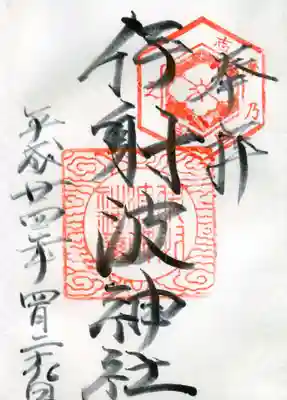 奉拝
伊射波神社
平成廿四年四月二十九日